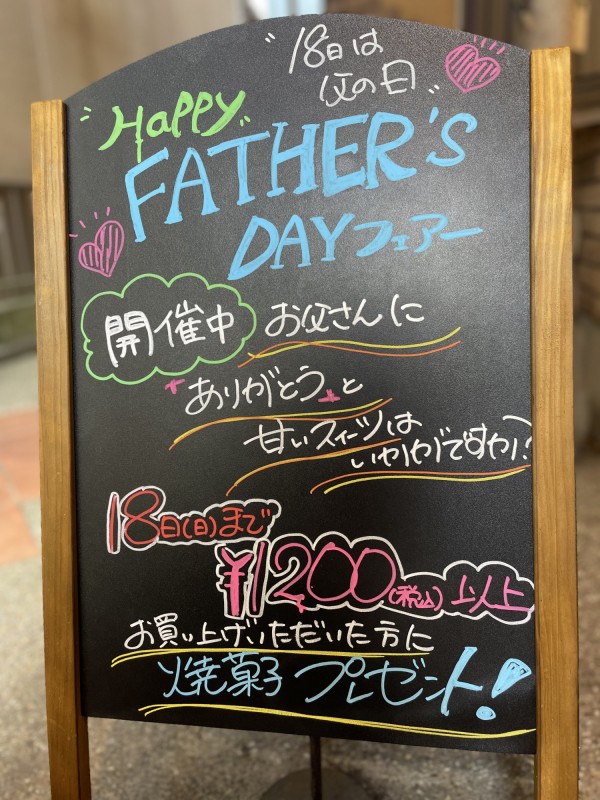 "18日は
父の日"
"Happy"
FATHER'S
DAYフェアー
開催中 お父さんに
"ありがとう"と
甘いスイーツは
いかがですか?
18日(日)まで
¥1200(税込)以上
お買い上げいただいた方に
焼菓子プレゼント!